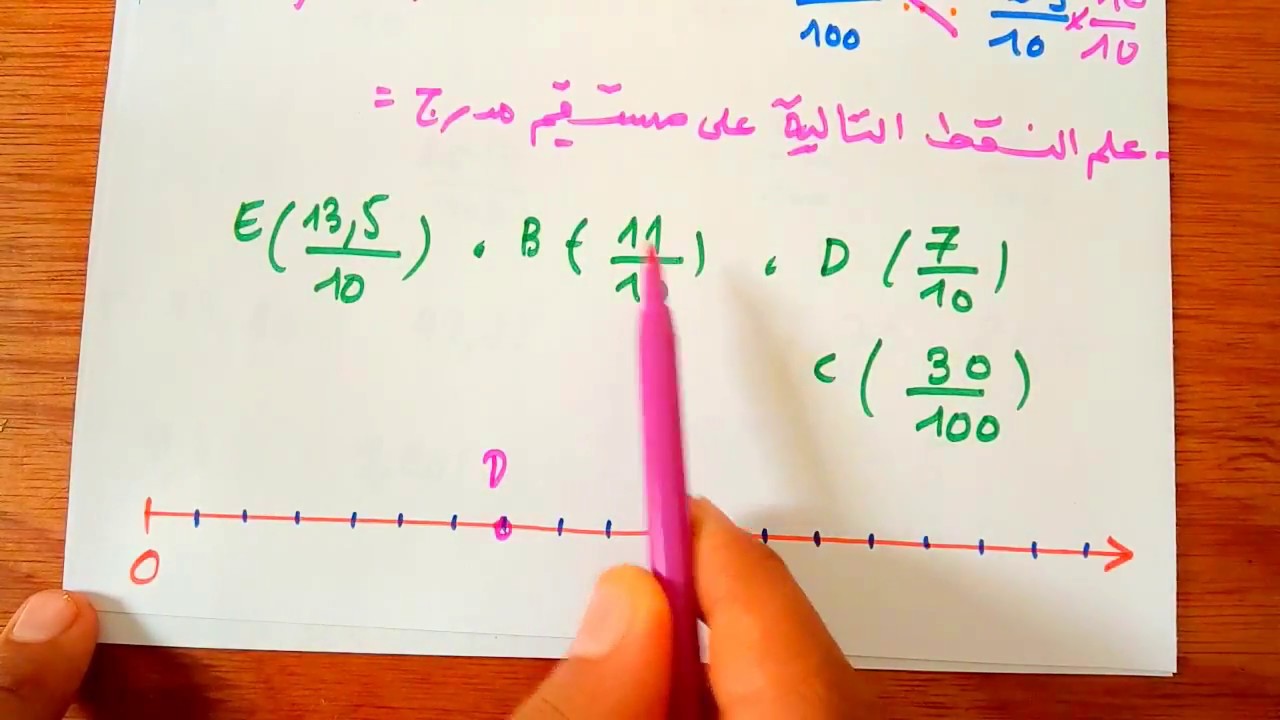 100 10 × 10
- علم النقط التالية على مستقيم مدرج :
E(13,5/10) . B(11/10) . D(7/10)
C(30/100)
D
0